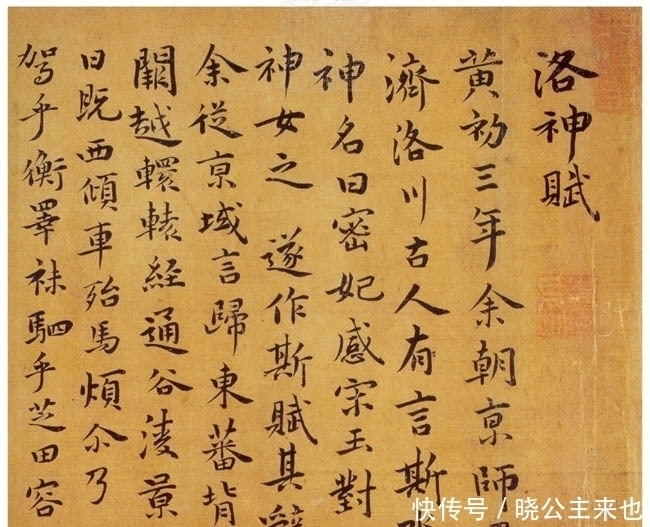 洛神賦
黄初三年余朝京師
濟洛川古人有言斯
神名曰密妃感宋玉對
神女之 遂作斯賦其辭
余從京域言歸東蕃背
闕越轘轅經通谷陵景
日既西傾車殆馬煩尒乃
駕乎衡睪秣駟乎芝田容
快传号/晓公主来也